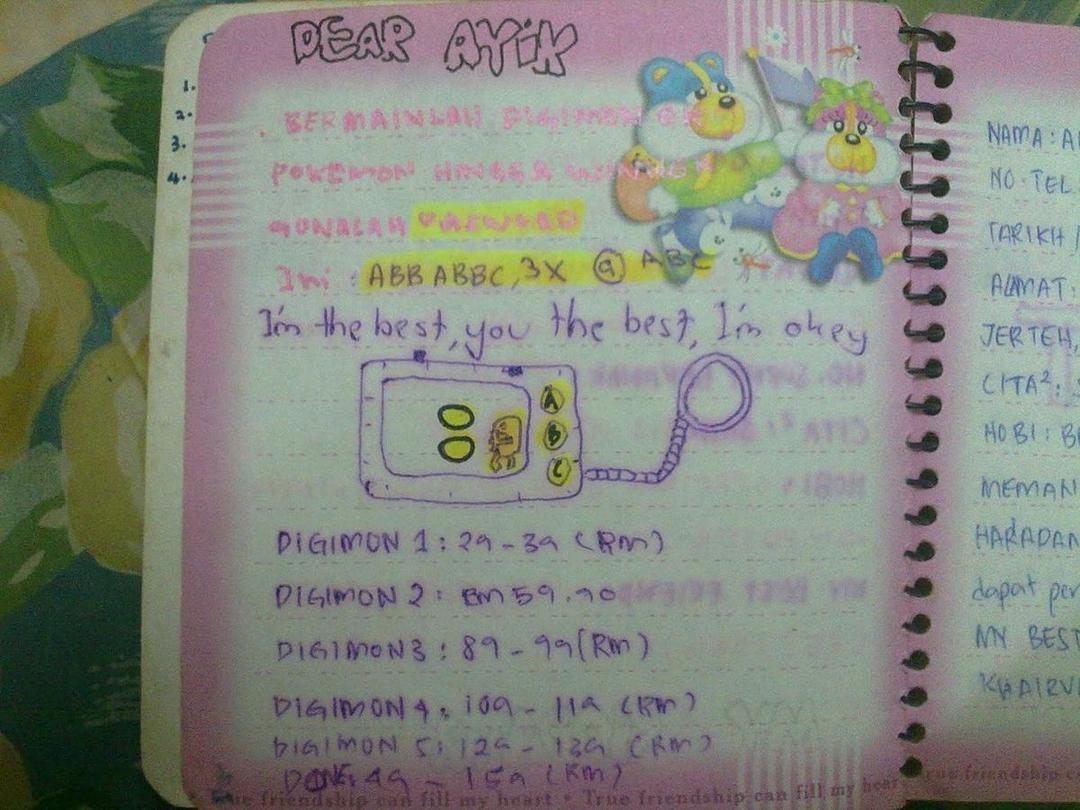 DEAR AYIK
1.
2.
3.
4.
BERMAINLAH DIGIMON OR
POKEMON HINGGA
GUNALAH PASWORD
Ini : ABBABBC, 3X @ ABC
I'm the best, you the best, I'm okey
A
B
C
DIGIMON 1 : 29 - 39 (RM)
DIGIMON 2 : RM 59.90
DIGIMON 3 : 89 - 99 (RM)
DIGIMON 4 : 109 - 119 (RM)
DIGIMON 5 : 129 - 139 (RM)
149 - 159 (RM)
True friendship can fill my heart • True friendship can fill my heart
NAMA : A
NO. TEL
TARIKH
ALAMAT :
JERTEH,
CITA² :
HOBI : B
MEMAN
HARADAN
dapat per
MY BEST
KHAIRU
True friendship c